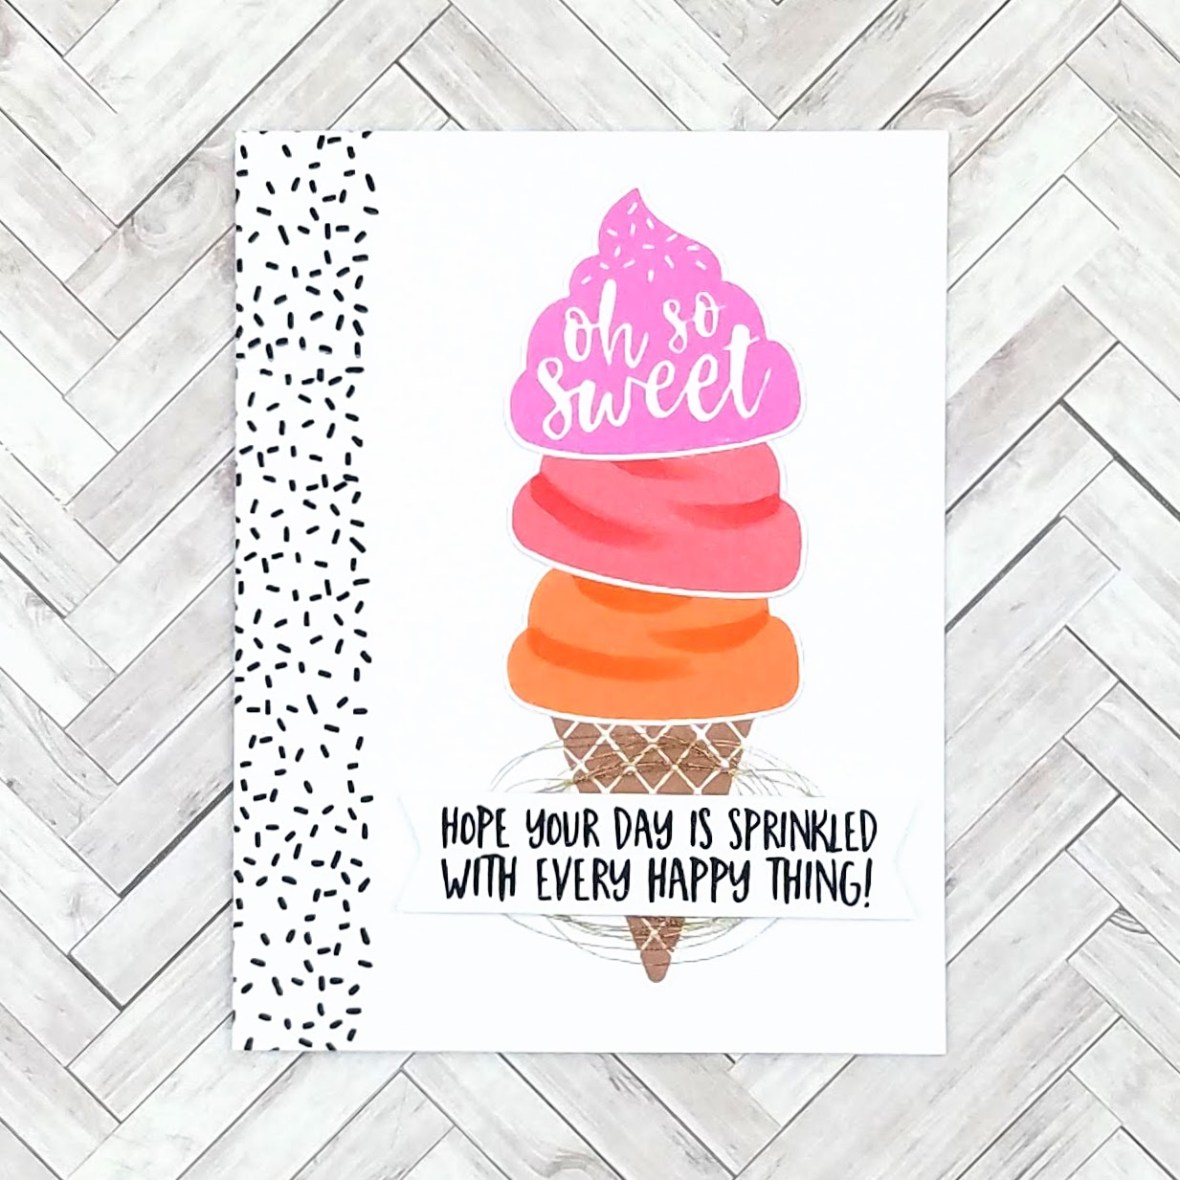 oh so
sweet
HOPE YOUR DAY IS SPRINKLED
WITH EVERY HAPPY THING!